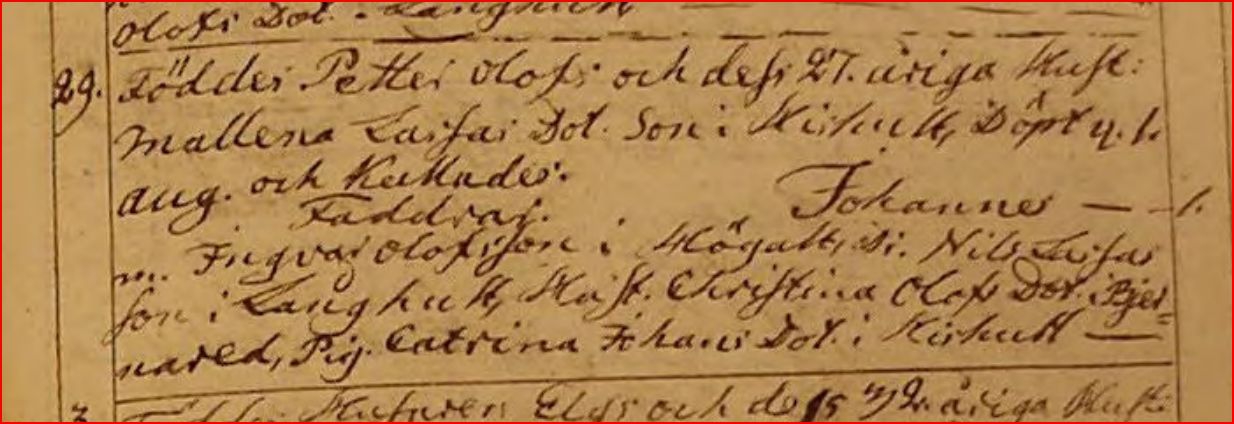 Olofs Dot. i Långhult —
29. Föddes Petter Olofs: och dess 27. åriga Hust:
Mallena Larsas Dot. Son i Kirhult, Döpt d. 1.
aug. och Kallades.
Johannes — 1.
Faddrar.
m. Ingvar Olofsson i Högalt, Dr. Nils Larsas
son i Långhult, Hust. Christina Olofs Dot. i Bjer=
nared, Pig. Catrina Johans Dot. i Kirhult —
3. Föddes Olufs och dess 32. åriga Hust: